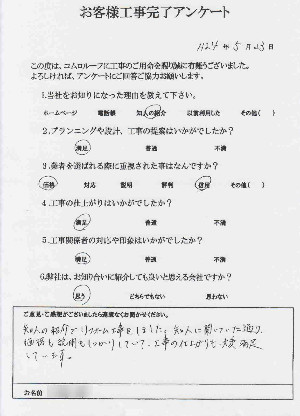 お客様工事完了アンケート
H24年5月23日
この度は、コムロルーフに工事のご用命を賜り誠に有難うございました。
よろしければ、アンケートにご回答ご協力お願いします。
1.当社をお知りになった理由を教えて下さい。
ホームページ 電話帳 知人の紹介 以前利用した その他( )
2.プランニングや設計、工事の提案はいかがでしたか?
満足 普通 不満
3.業者を選ばれる際に重視された事はなんですか?
価格 対応 説明 評判 信用 その他( )
4.工事の仕上がりはいかがでしたか?
満足 普通 不満
5.工事関係者の対応や印象はいかがでしたか?
満足 普通 不満
6.弊社は、お知り合いに紹介しても良いと思える会社ですか?
思う どちらでもない 思わない
ご意見・ご感想がございましたら遠慮なくお聞かせください。
知人の紹介でリフォーム工事をしました。知人に聞いていた通り、
価格も説明もしっかりしていて、工事の仕上がりも大変満足
しています。
お名前